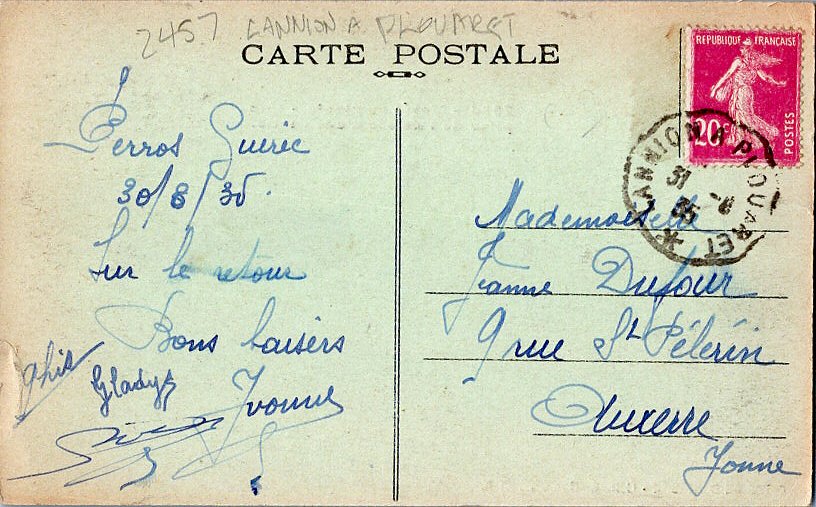 2457 LANNION A PLOUARET
CARTE POSTALE
REPUBLIQUE FRANÇAISE
20c
POSTES
LANNION A PLOUARET
31 -8
35
Perros Guirec
30/8/35.
Sur le retour
Bons baisers
Ghis
Gladys
Yvonne
Mademoiselle
Jeanne Dufour
9 rue St Pélerin
Auxerre
Yonne